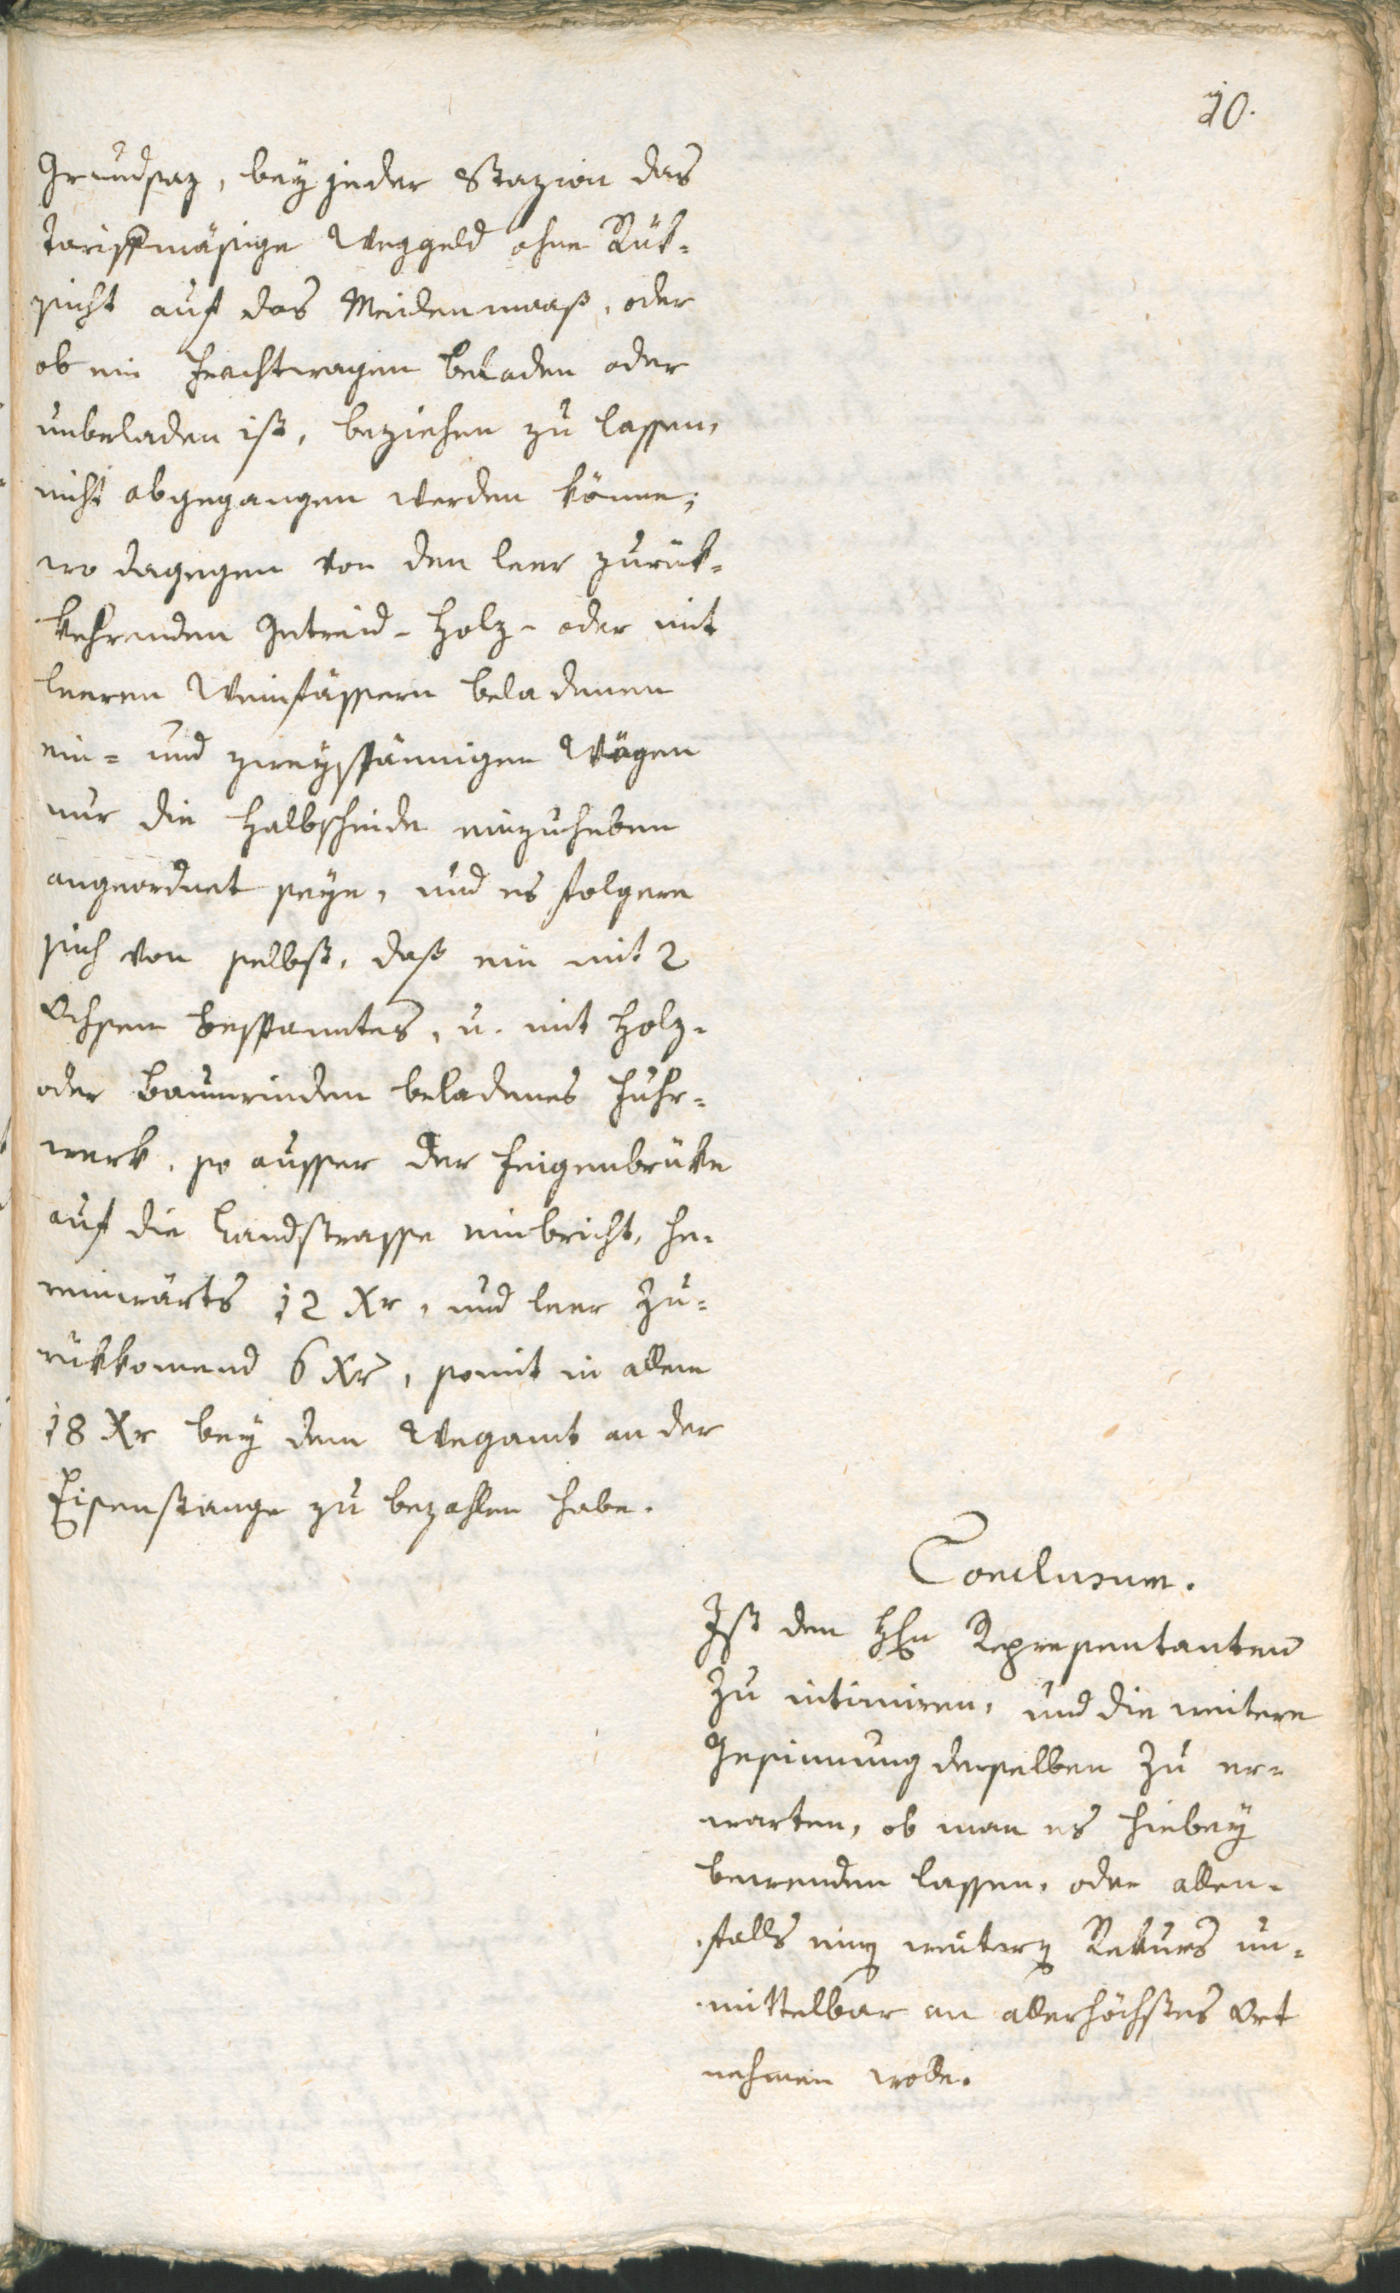 10.
Grundsaz, bey jeder Stazion das
tariffmäsige Weggeld ohne Rük-
sicht auf das Meilenmaaß, oder
ob ein Frachtwagen beladen oder
unbeladen ist, beziehen zu lassen,
nicht abgegangen werden könne;
wo dagegen von den leer zurük-
kehrenden Getreid- Holz- oder mit
leeren Weinfässern beladenen
ein- und zweyspännigen Wägen
nur die Halbscheide einzuheben
angeordnet seye, und es folgere
sich von selbst, daß ein mit 2
Ochsen bespanntes, u. mit Holz-
oder Baumrinden beladenes Fuhr-
werk, so ausser der Feigenbrüke
auf die Landstrasse einbricht, he-
reinwärts 12 Xr, und leer zu-
rükkomend 6 Xr, somit in allem
18 Xr bey dem Wegamt an der
Eisenstange zu bezahlen habe.
Conclusum.
Ist den HHn Representanten
zu intimiren, und die weitere
Gesinnung derselben zu er-
warten, ob man es hiebey
bewenden lassen, oder allen-
falls einen weiteren Rekurs un-
mittelbar an allerhöchstes Ort
nehmen wolle.